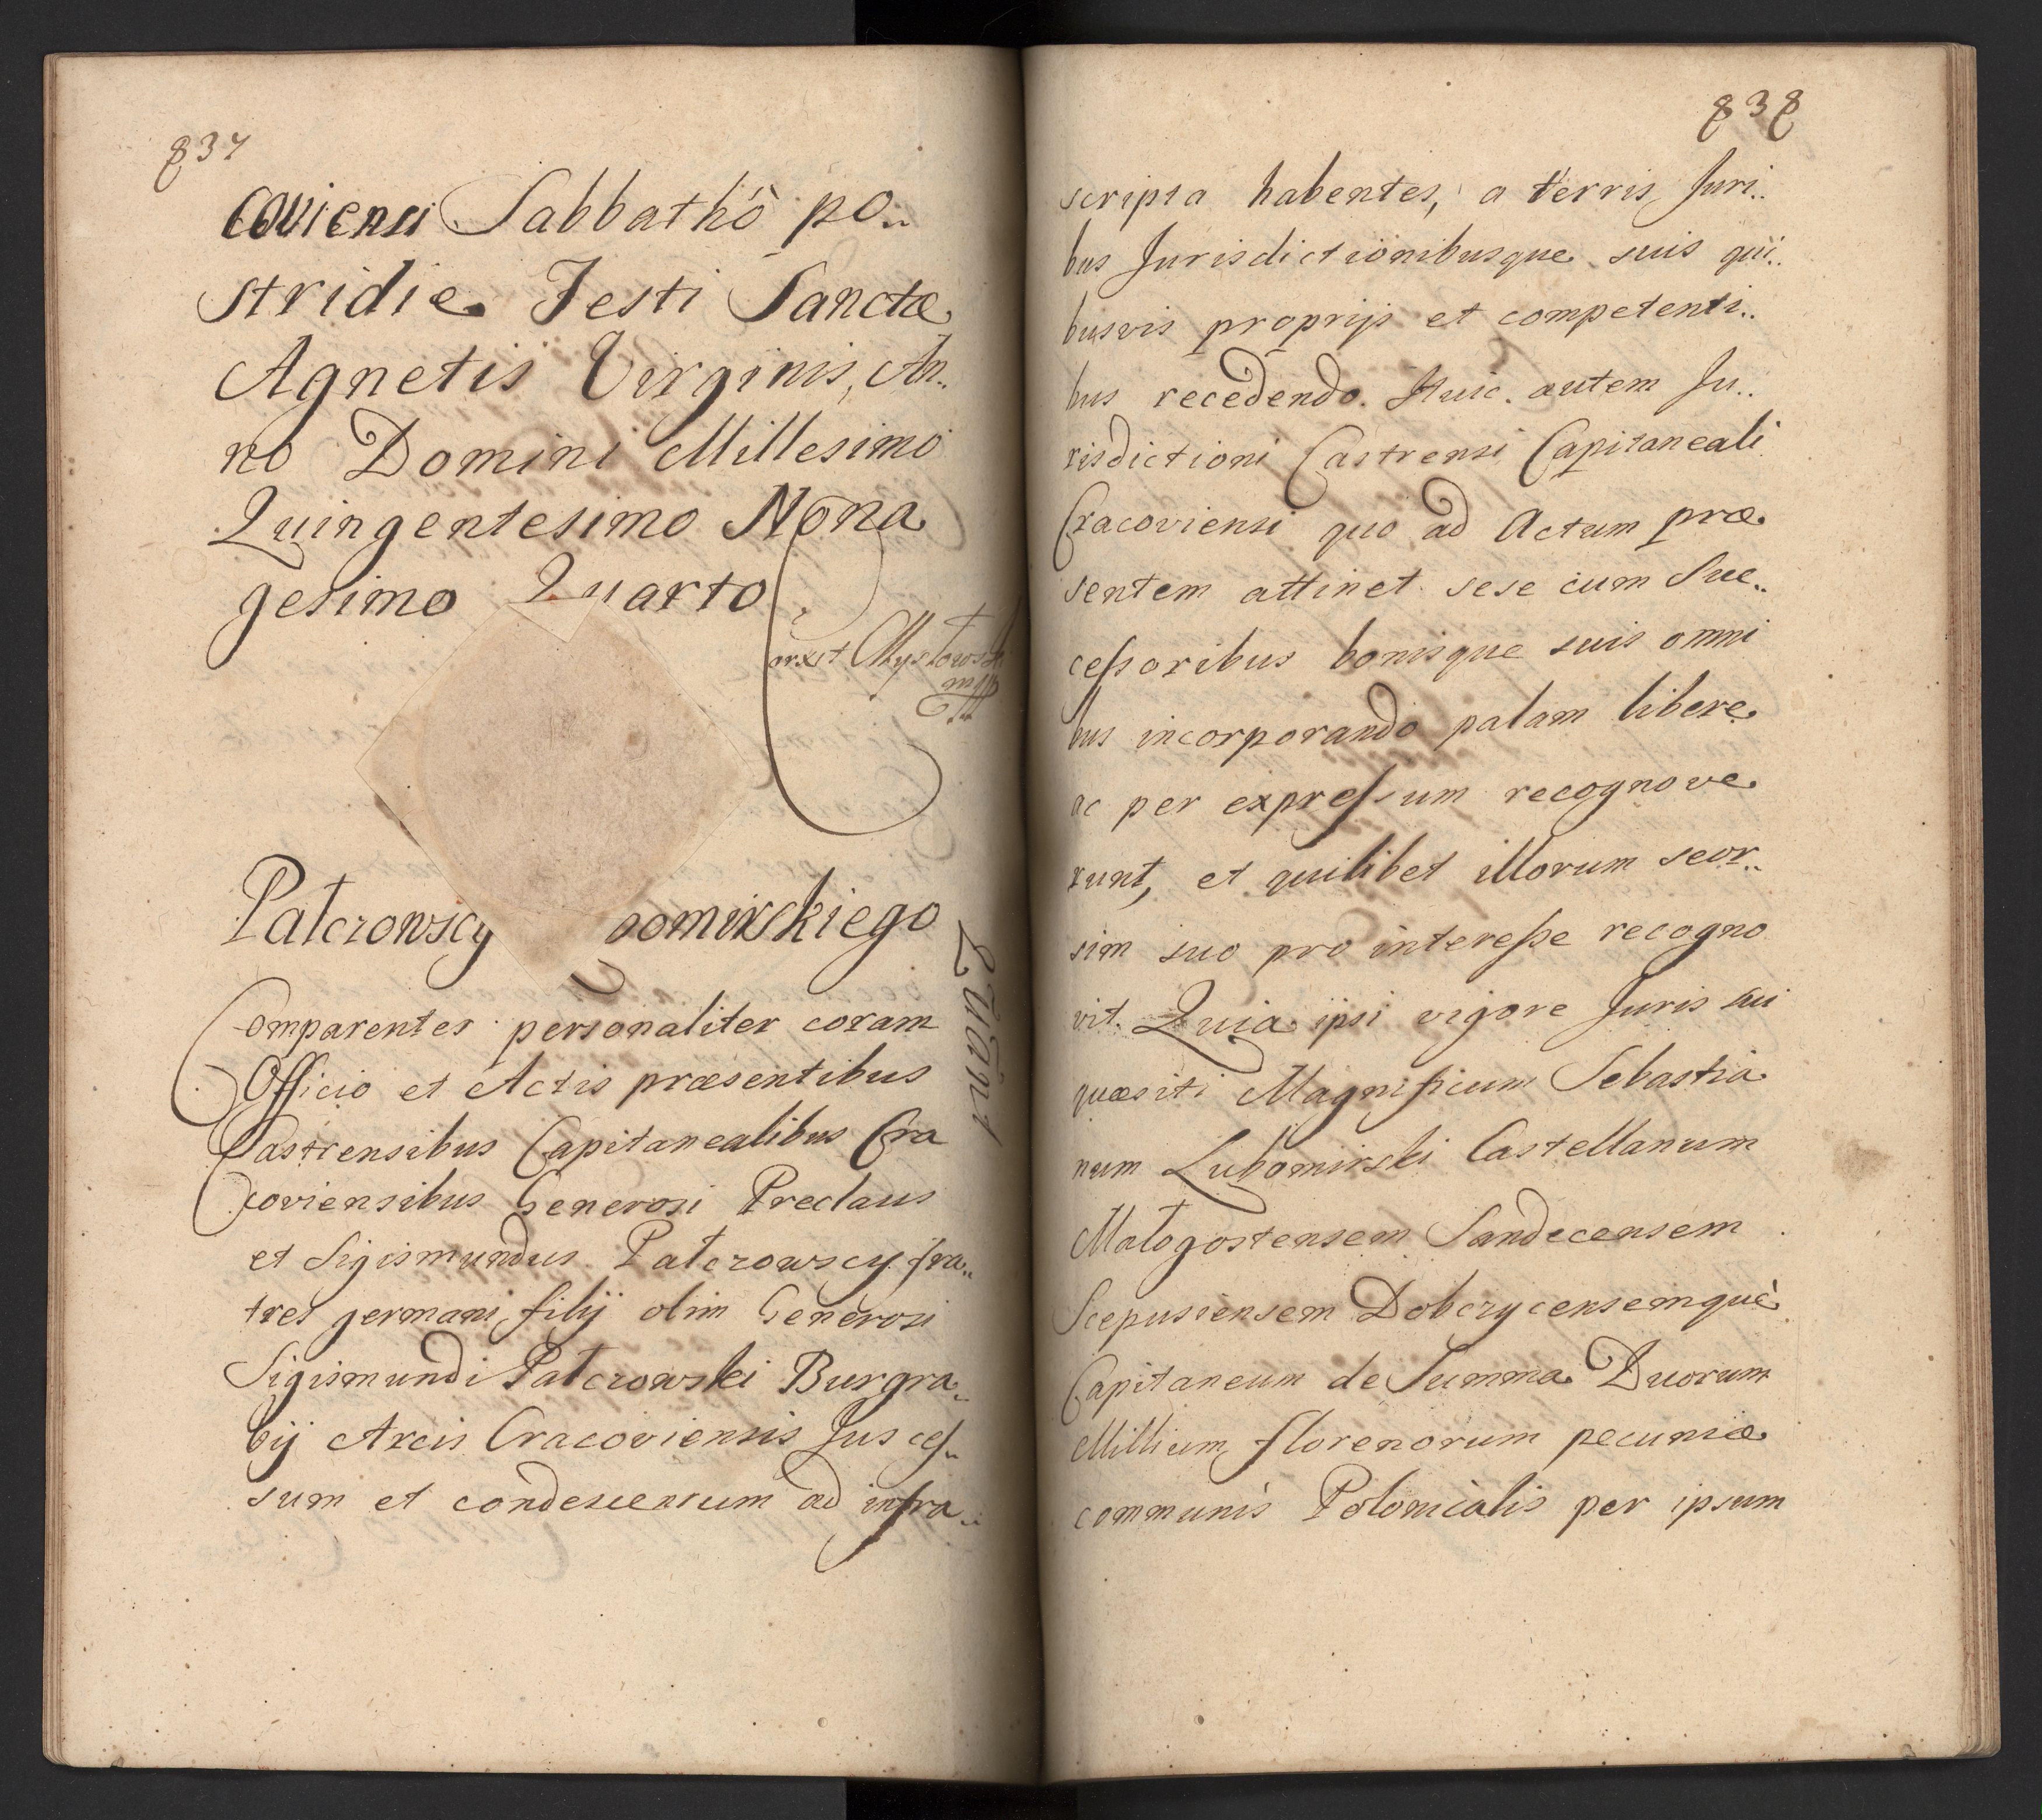 837
coviensi Sabbathò po..
stridie Festi Sanctæ
Agnetis Virginis, An..
no Domini Millesimo
Quingentesimo Nona
gesimo Quarto
Palczowscy
bomirskiego
Quant
Comparentes personaliter coram
Officio et Actis præsentibus
Castrensibus Capitanealibus Cra
coviensibus Generosi Preclaus
et Sigismundus Palczowscy fra..
tres germani, filij olim Generosi
Sigismundi Palczowski Burgra..
bij Arcis Cracoviensis Jus ces..
sum et condescensum ad infra..
838
scripta habentes, a terris Juri..
bus Jurisdictionibusque suis qui..
busvis proprijs et competenti..
bus recedendo. Huic autem Ju..
risdictioni Castrensi Capitaneali
Cracoviensi quo ad Actum præ
sentem attinet sese cum Suc..
cessoribus bonisque suis omni
bus incorporando palam libere
ac per expressum recognove
runt, et quilibet illorum seor..
sim suo pro interesse recogno
vit. Quia ipsi vigore Juris sui
quæsiti Magnificum Sebastia
num Lubomirski Castellanum
Małogostensem Sandecensem
Scepusiensem Dobczycensemquè
Capitaneum de Summa Duorum
Millium florenorum pecuniæ
communis Polonicalis per ipsum